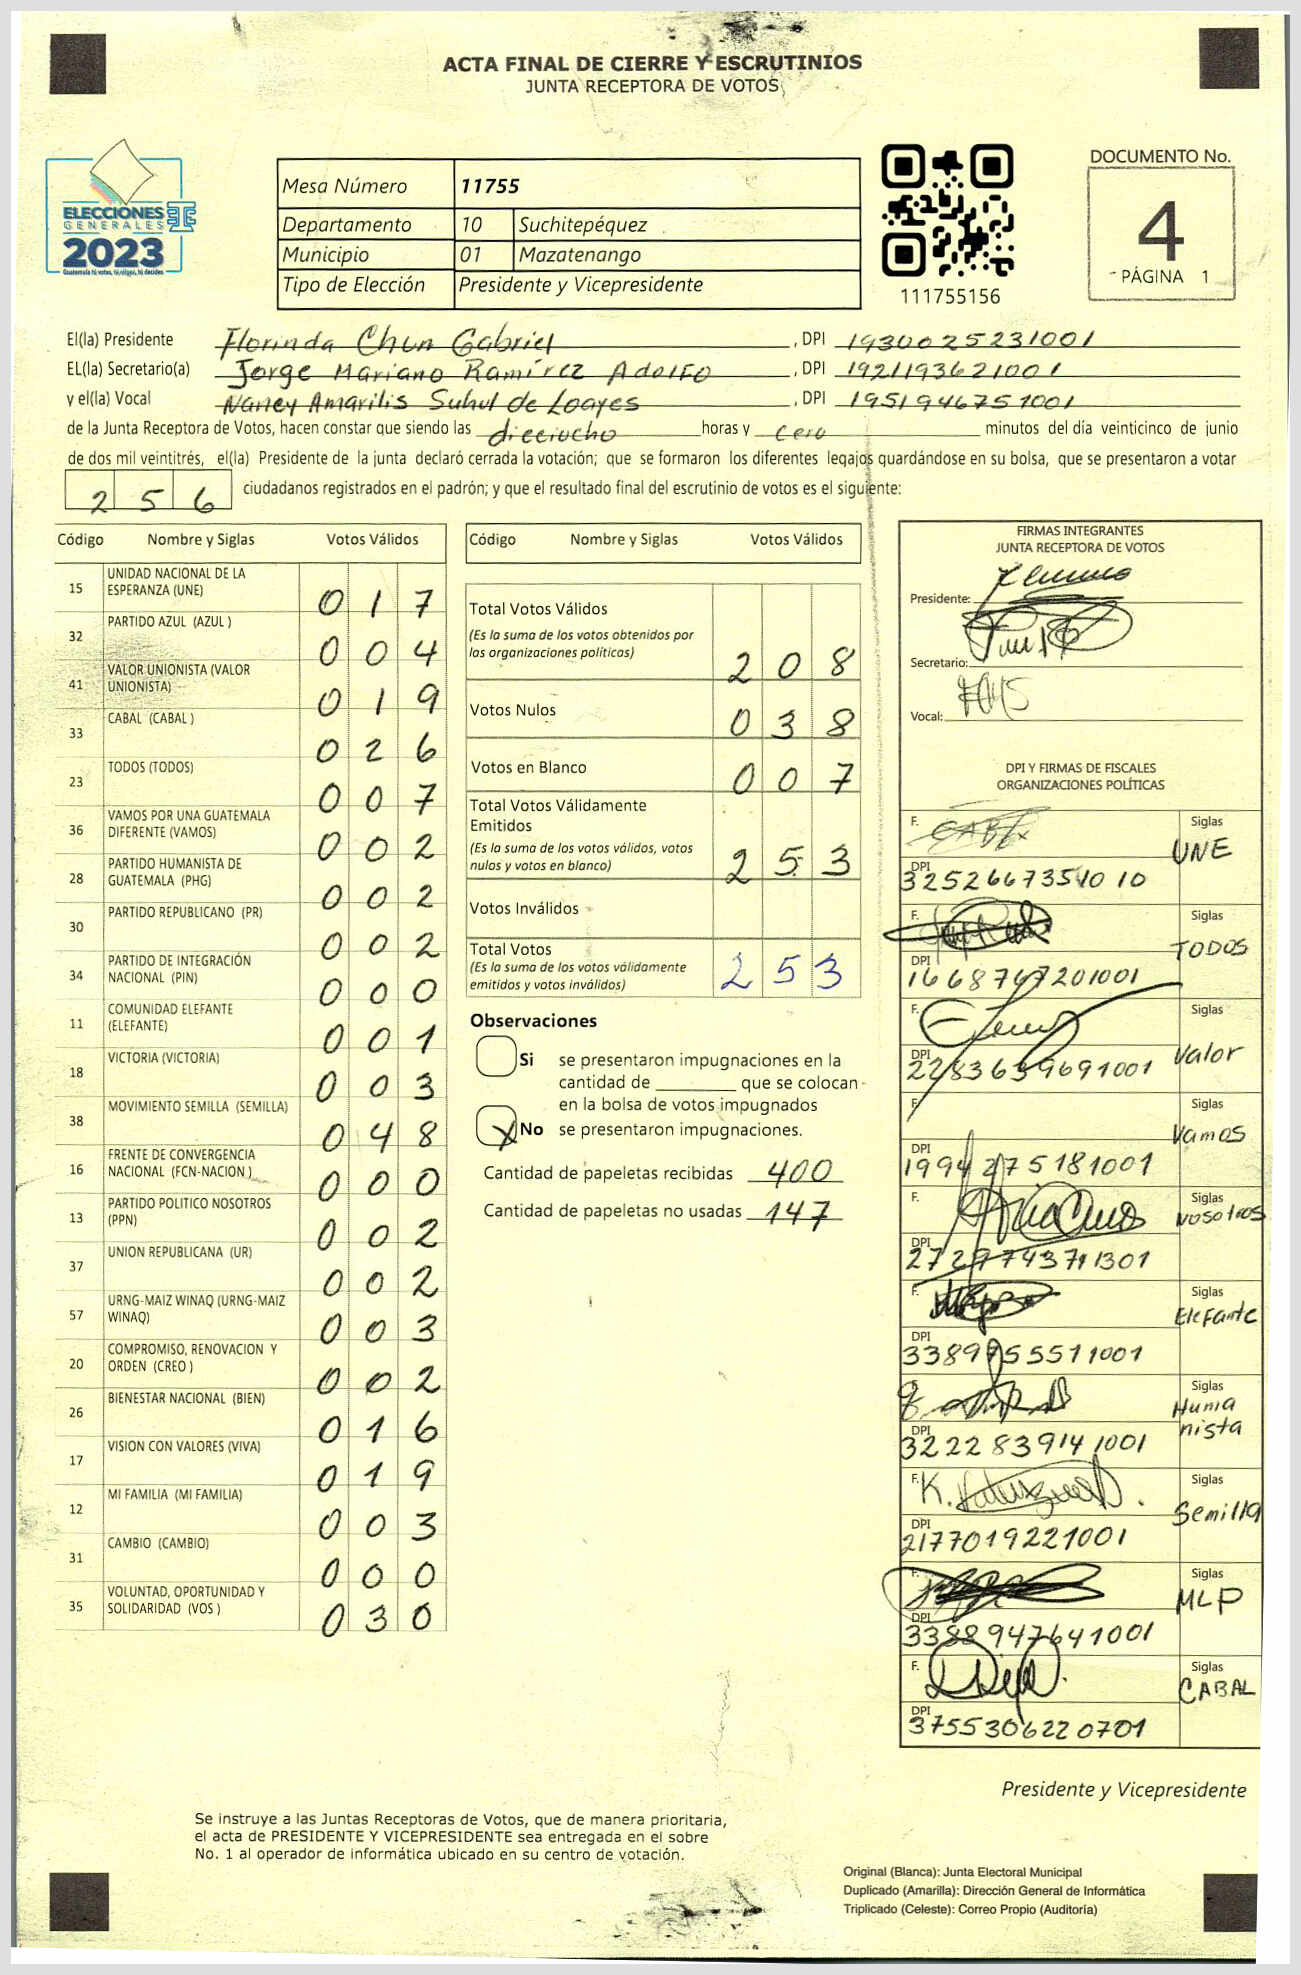 ACTA FINAL DE CIERRE Y ESCRUTINIOS
JUNTA RECEPTORA DE VOTOS
ELECCIONES
GENERALES
2023
Guatemala tú votas, tú eliges, tú decides
Mesa Número 11755
Departamento 10 Suchitepéquez
Municipio 01 Mazatenango
Tipo de Elección Presidente y Vicepresidente
111755156
DOCUMENTO No.
4
PÁGINA 1
El(la) Presidente Florinda Chun Gabriel, DPI 1930025231001
EL(la) Secretario(a) Jorge Mariano Ramírez Adolfo, DPI 1921193621001
y el(la) Vocal Nancy Amarilis Suhul de Loayes, DPI 1951946751001
de la Junta Receptora de Votos, hacen constar que siendo las dieciocho horas y cero minutos del día veinticinco de junio
de dos mil veintitrés, el(la) Presidente de la junta declaró cerrada la votación; que se formaron los diferentes legajos guardándose en su bolsa, que se presentaron a votar
256 ciudadanos registrados en el padrón; y que el resultado final del escrutinio de votos es el siguiente:
Código Nombre y Siglas Votos Válidos
15 UNIDAD NACIONAL DE LA ESPERANZA (UNE) 017
32 PARTIDO AZUL (AZUL ) 004
41 VALOR UNIONISTA (VALOR UNIONISTA) 019
33 CABAL (CABAL ) 026
23 TODOS (TODOS) 007
36 VAMOS POR UNA GUATEMALA DIFERENTE (VAMOS) 002
28 PARTIDO HUMANISTA DE GUATEMALA (PHG) 002
30 PARTIDO REPUBLICANO (PR) 002
34 PARTIDO DE INTEGRACIÓN NACIONAL (PIN) 000
11 COMUNIDAD ELEFANTE (ELEFANTE) 001
18 VICTORIA (VICTORIA) 003
38 MOVIMIENTO SEMILLA (SEMILLA) 048
16 FRENTE DE CONVERGENCIA NACIONAL (FCN-NACION ) 000
13 PARTIDO POLITICO NOSOTROS (PPN) 002
37 UNION REPUBLICANA (UR) 002
57 URNG-MAIZ WINAQ (URNG-MAIZ WINAQ) 003
20 COMPROMISO, RENOVACION Y ORDEN (CREO ) 002
26 BIENESTAR NACIONAL (BIEN) 016
17 VISION CON VALORES (VIVA) 019
12 MI FAMILIA (MI FAMILIA) 003
31 CAMBIO (CAMBIO) 000
35 VOLUNTAD, OPORTUNIDAD Y SOLIDARIDAD (VOS ) 030
Código Nombre y Siglas Votos Válidos
Total Votos Válidos
(Es la suma de los votos obtenidos por
las organizaciones políticas) 208
Votos Nulos 038
Votos en Blanco 007
Total Votos Válidamente
Emitidos
(Es la suma de los votos válidos, votos
nulos y votos en blanco) 253
Votos Inválidos
Total Votos
(Es la suma de los votos válidamente
emitidos y votos inválidos) 253
Observaciones
Si se presentaron impugnaciones en la
cantidad de ________ que se colocan
en la bolsa de votos impugnados
X No se presentaron impugnaciones.
Cantidad de papeletas recibidas 400
Cantidad de papeletas no usadas 147
FIRMAS INTEGRANTES
JUNTA RECEPTORA DE VOTOS
Presidente:
Secretario:
Vocal:
DPI Y FIRMAS DE FISCALES
ORGANIZACIONES POLÍTICAS
F. Siglas UNE
DPI 3252667351010
F. Siglas TODOS
DPI 1668767201001
F. Siglas Valor
DPI 2283639691001
F. Siglas Vamos
DPI 1994275181001
F. Siglas Nosotros
DPI 2729774371301
F. Siglas Elefante
DPI 3389755511001
F. Siglas Huma
nista
DPI 3222839141001
F. Siglas Semilla
DPI 2177019221001
F. Siglas MLP
DPI 3388947641001
F. Siglas CABAL
DPI 3755306220701
Presidente y Vicepresidente
Se instruye a las Juntas Receptoras de Votos, que de manera prioritaria,
el acta de PRESIDENTE Y VICEPRESIDENTE sea entregada en el sobre
No. 1 al operador de informática ubicado en su centro de votación.
Original (Blanca): Junta Electoral Municipal
Duplicado (Amarilla): Dirección General de Informática
Triplicado (Celeste): Correo Propio (Auditoría)